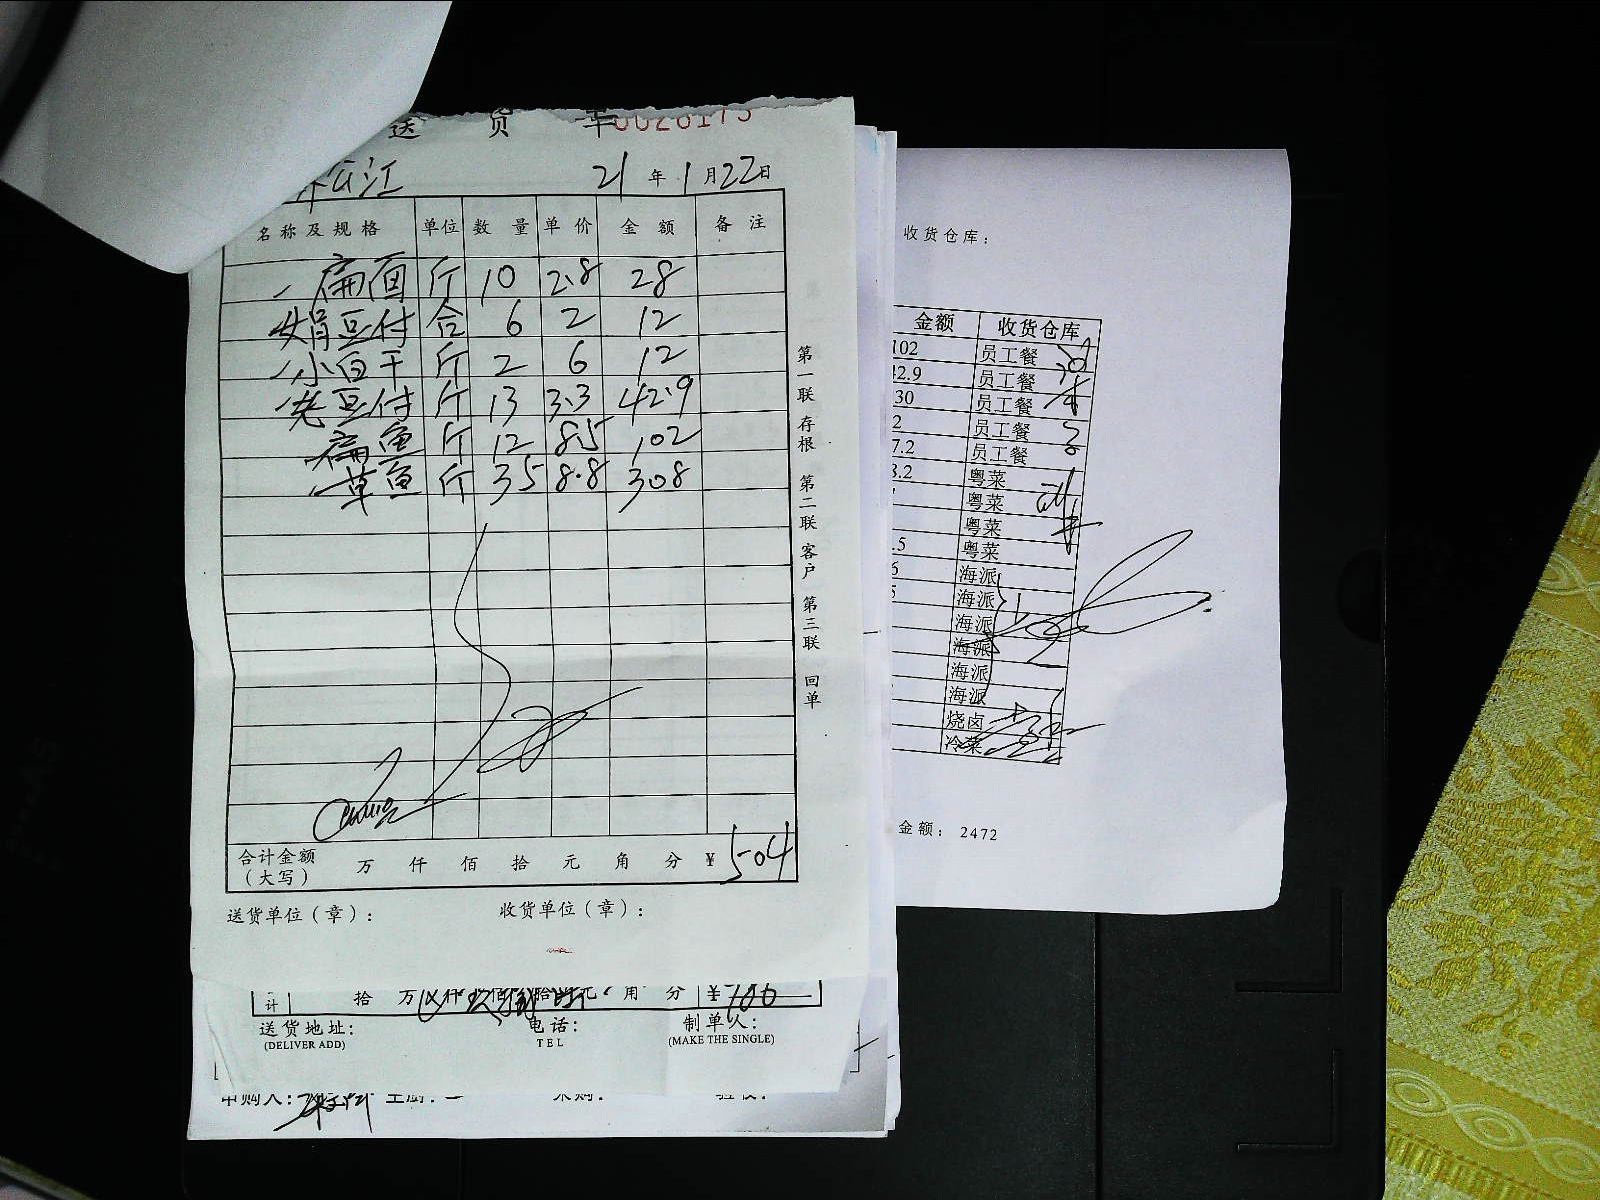 送 货 单
21 年 1 月 22 日
名称及规格 单位 数量 单价 金额 备注
扁面 斤 10 2.8 28
娟豆付 合 6 2 12
小白干 斤 2 6 12
老豆付 斤 13 3.3 42.9
扁鱼 斤 12 8.5 102
草鱼 斤 35 8.8 308
合计金额 万 仟 佰 拾 元 角 分 ¥ 504
(大写)
送货单位(章): 收货单位(章):
第一联 存根 第二联 客户 第三联 回单
计 拾 万 仟 佰 拾 元 角 分 ¥
送货地址: 电话: 制单人:
(DELIVER ADD) TEL (MAKE THE SINGLE)
申购人:
收货仓库:
金额 收货仓库
102 员工餐
42.9 员工餐
30 员工餐
2 员工餐
7.2 员工餐
3.2 粤菜
粤菜
粤菜
.5 粤菜
6 海派
海派
海派
海派
海派
海派
烧卤
冷菜
金额: 2472